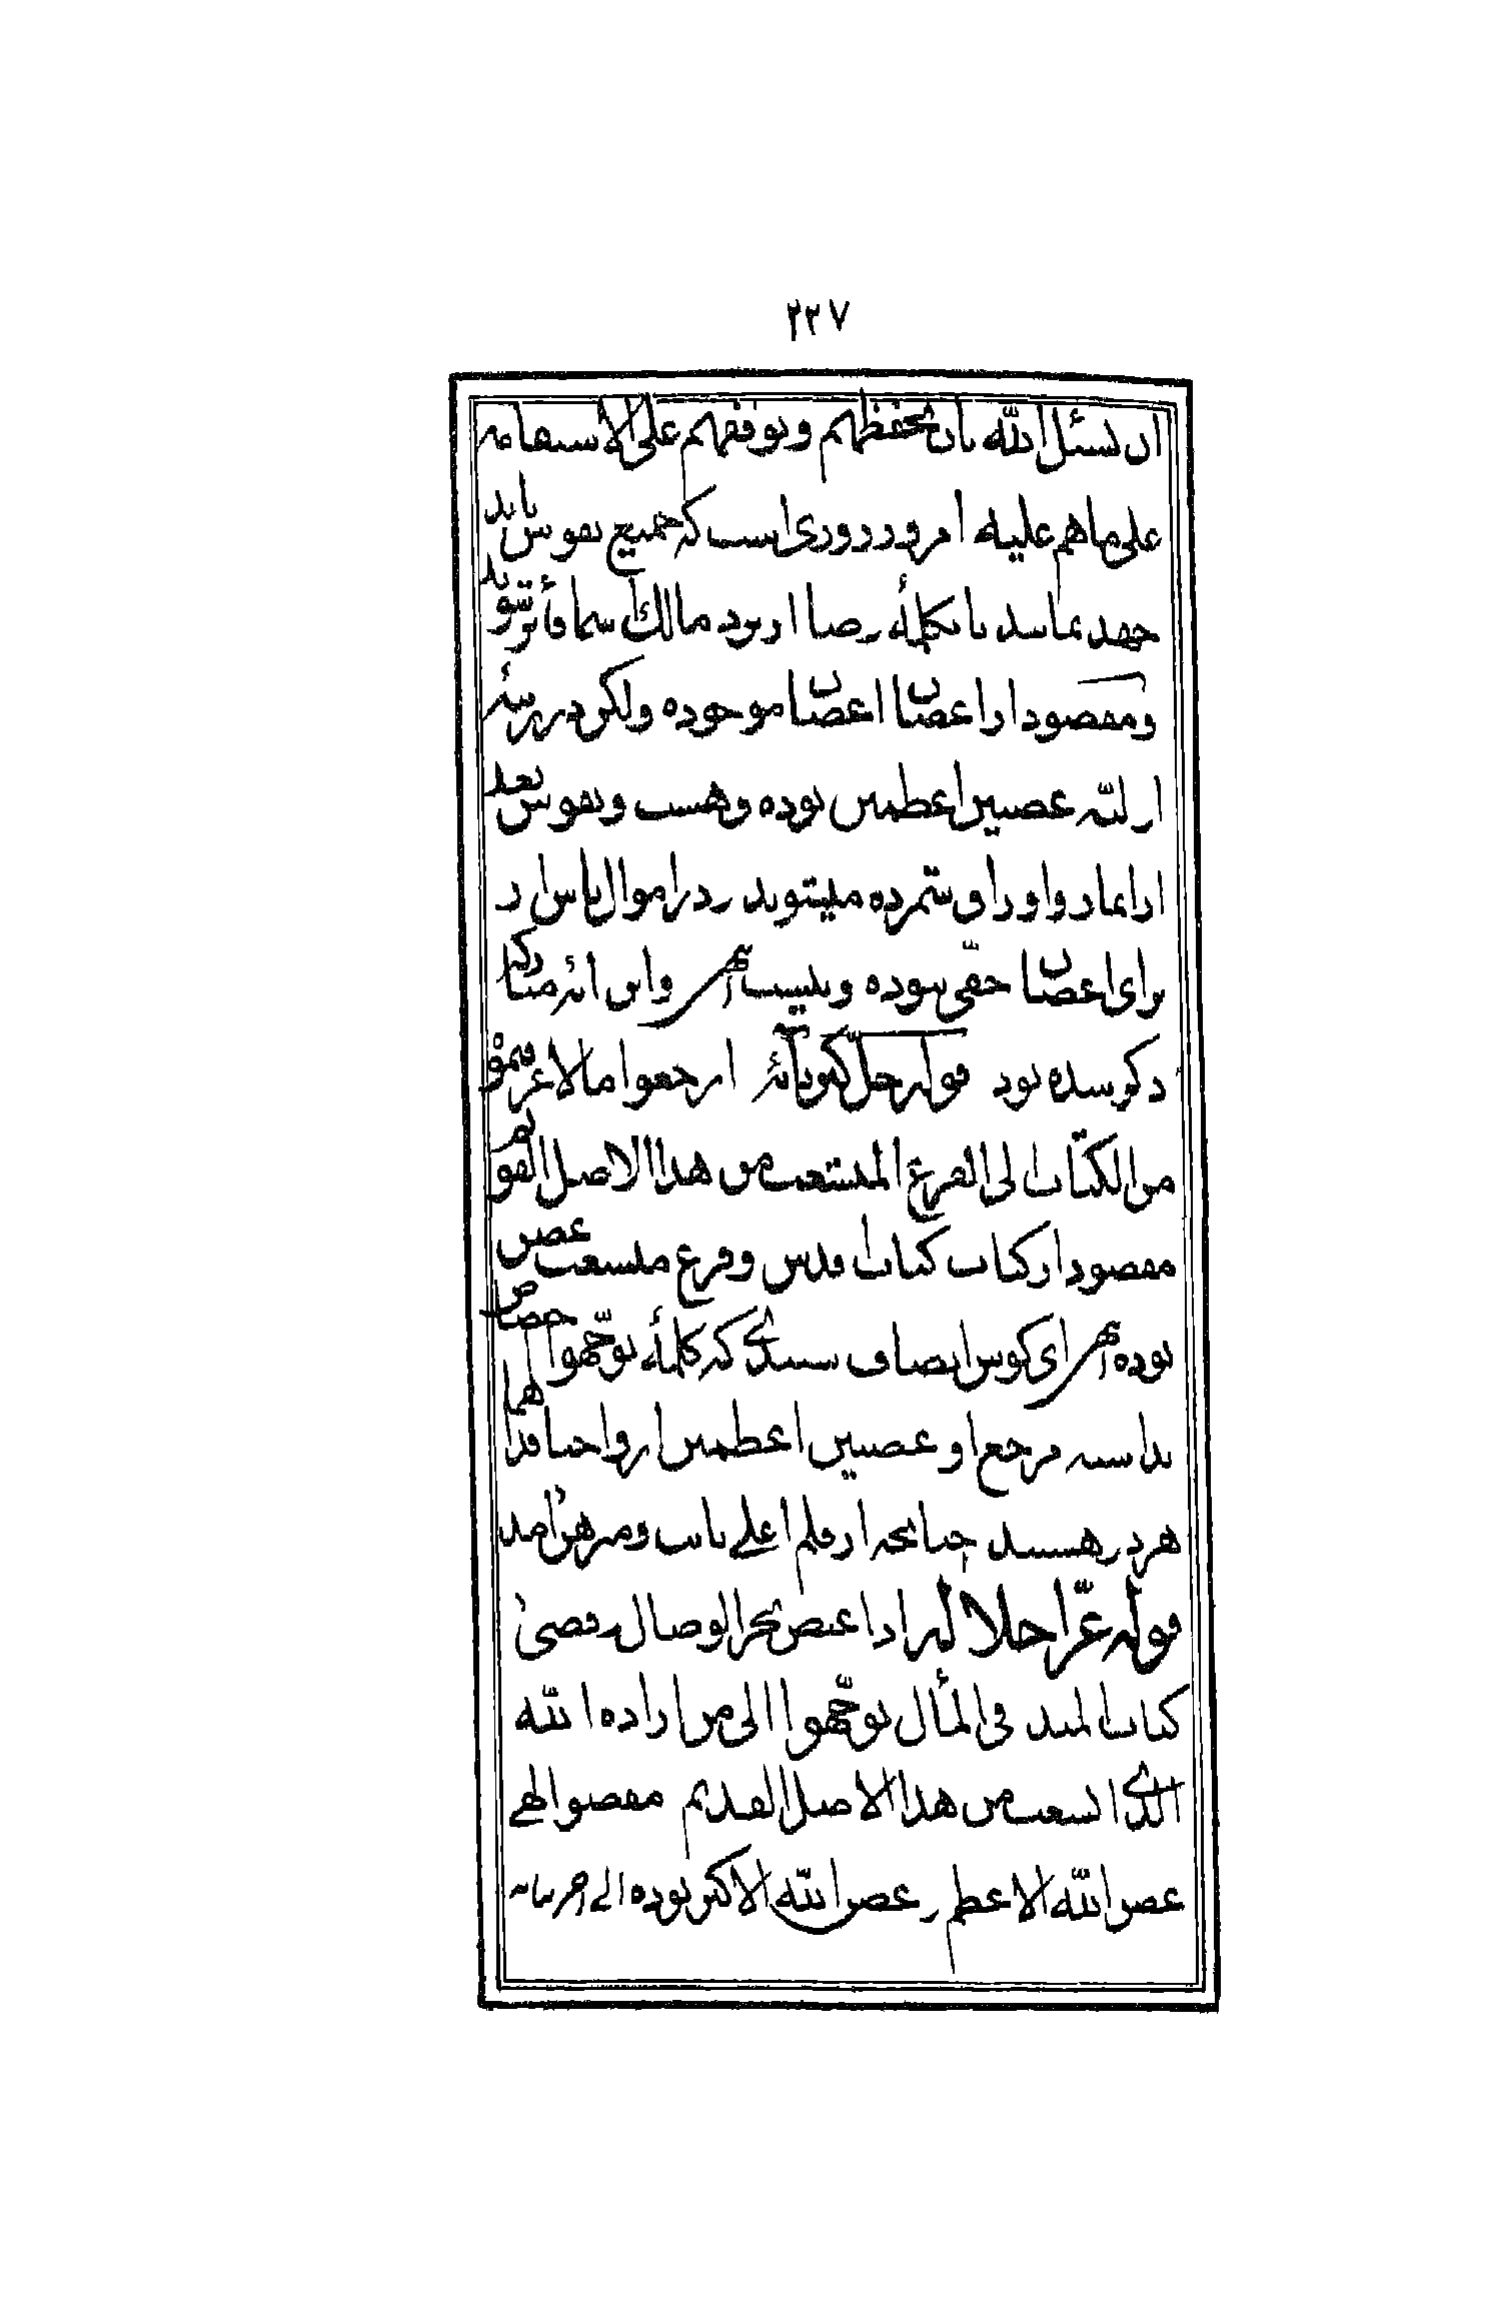 ٢٢٧
ان نسئل الله بان يحفظهم و يوفقهم على الاستقامه
على ما هم عليه امروز روزی است که جمیع نفوس باید
جهد نمایند تا بکلمهٔ رضا از نزد مالک اسما فائز شوند
و مقصود از اغصان اغصان موجوده ولکن در رتبهٔ
اولیه غصنین اعظمین بوده و هست و نفوس بعد
از اثمار و اوراق شمرده میشوند و در اموال ناس از
برای اغصان حقی نبوده و نیست انتهی و این آیهٔ مبارکه
ذکر شده بود قوله جل کبریائه ارجعوا ما لا عرفتموه
من الکتاب الی الفرع المنشعب من هذا الاصل القویم
مقصود از کتاب کتاب اقدس و فرع منشعب غصن
بوده انتهی ای گوش انصاف بشنوی که کلمهٔ توجهوا
بداست مرجع او غصنین اعظمین ارواحنا فداهما
هر دو هستند چنانچه از قلم اعلی
قوله عزّ اجلاله اذا غیض بحر الوصال و قضی
کتاب المبدء فی المآل توجّهوا الی من اراده الله
الذی انشعب من هذا الاصل القدیم مقصود الهی
غصن الله الاعظم و غصن الله الاکبر بوده الی آخر بیانه